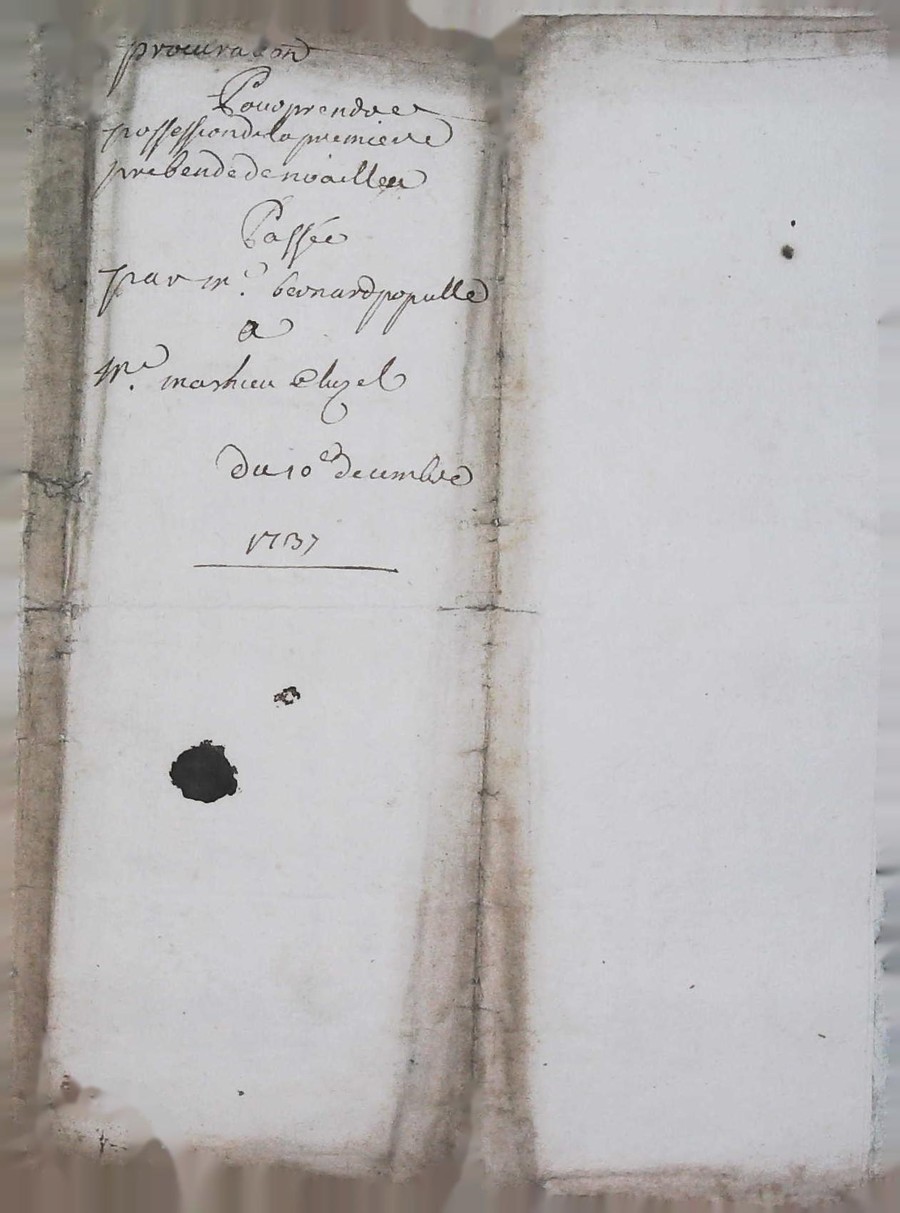 procuration
Pour prendre
possession de la premiere
prebende de noailles
Passée
par mr. bernard populle
a
Mr. mathieu Cluzel
du 10e decembre
1737